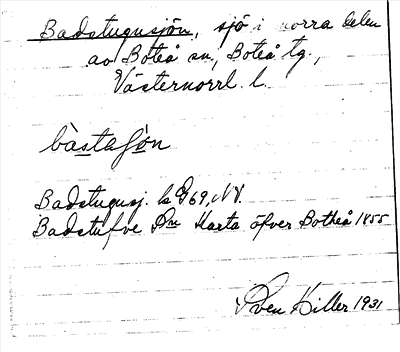 Badstugusjön, sjö i norra delen
av Boteå sn, Boteå tg.,
Västernorrl. l.
bàstaʃö̀n
Badstugusj. k G69, NV.
Badstufve Karta öfver Botheå 1855
Sven Hiller 1931